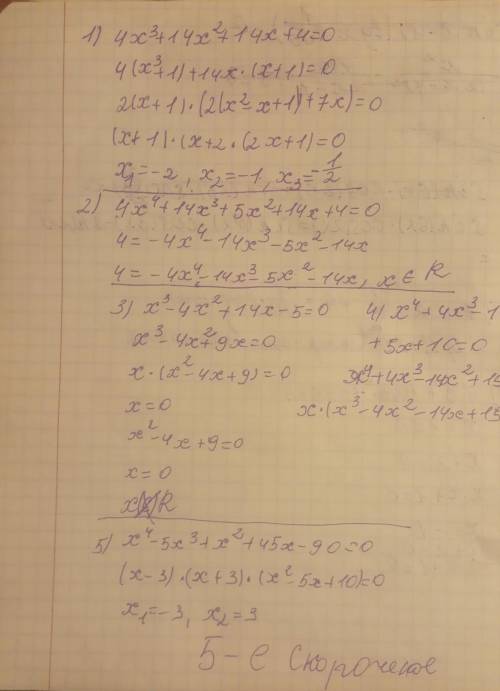 1) 4x³+14x²+14x+4=0
4(x³+1)+14x·(x+1)=0
2(x+1)·(2(x²-x+1)+7x)=0
(x+1)·(x+2·(2x+1)=0
x₁=-2, x₂=-1, x₃=-1/2
2) 4x⁴+14x³+5x²+14x+4=0
4=-4x⁴-14x³-5x²-14x
4=-4x⁴-14x³-5x²-14x, x∈R
3) x³-4x²+14x-5=0
x³-4x²+9x=0
x·(x²-4x+9)=0
x=0
x²-4x+9=0
x=0
x R
4) x⁴+4x³-1
+5x+10=0
x⁴+4x³-14x²+15
x·(x³-4x²-14x+15
5) x⁴-5x³+x²+45x-90=0
(x-3)·(x+3)·(x²-5x+10)=0
x₁=-3, x₂=3
5-е Скороченое